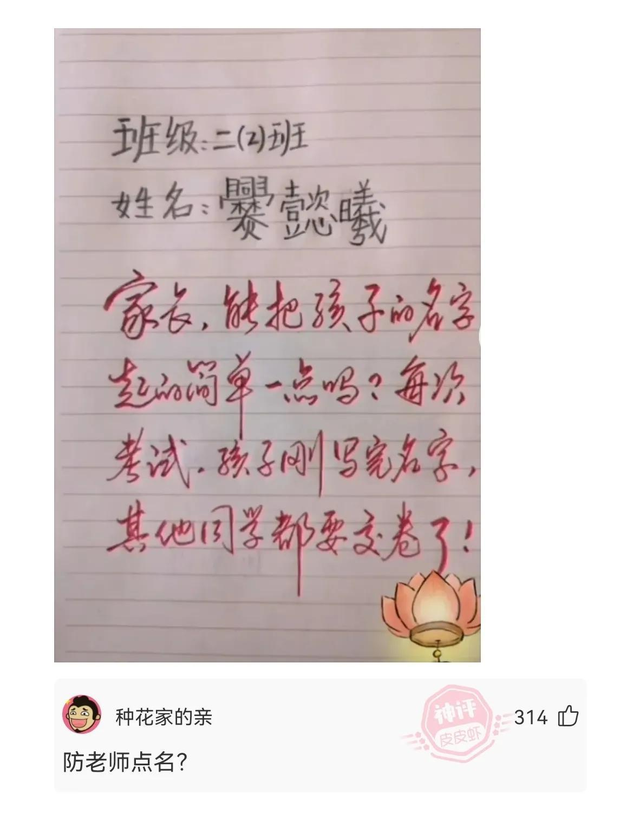 班级:二(2)班
姓名:爨懿曦
家长,能把孩子的名字
起的简单一点吗?每次
考试.孩子刚写完名字,
其他同学都要交卷了!
种花家的亲
神评
皮皮虾
314
防老师点名?